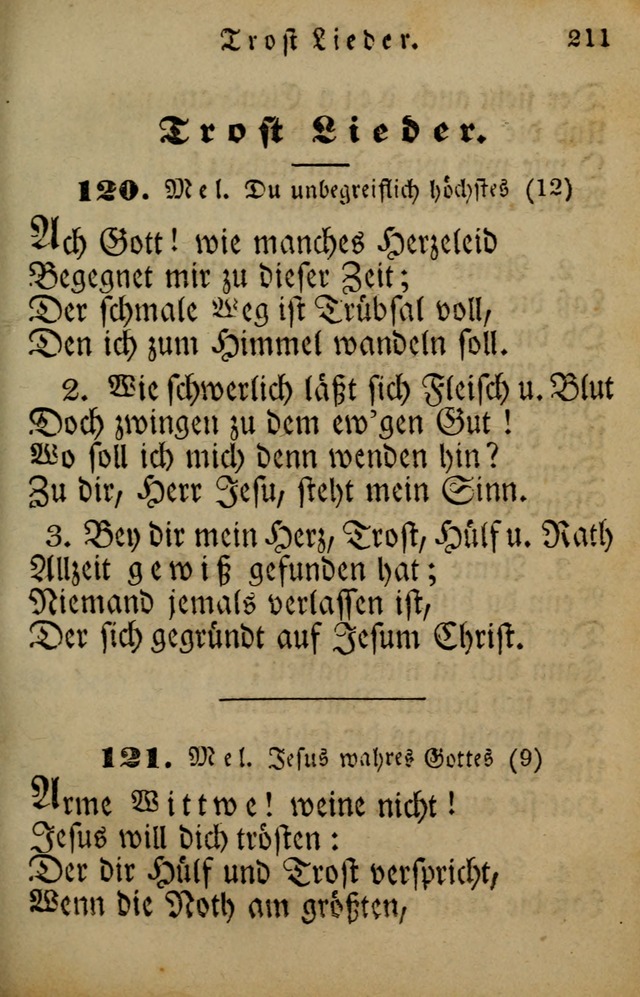 Trost Lieder. 211
Trost Lieder.
120. Mel. Du unbegreiflich höchstes (12)
Ach Gott! wie manches Herzeleid
Begegnet mir zu dieser Zeit;
Der schmale Weg ist Trübsal voll,
Den ich zum Himmel wandeln soll.
2. Wie schwerlich läßt sich Fleisch u. Blut
Doch zwingen zu dem ew'gen Gut!
Wo soll ich mich denn wenden hin?
Zu dir, Herr Jesu, steht mein Sinn.
3. Bey dir mein Herz, Trost, Hülf u. Rath
Allzeit gewiß gefunden hat;
Niemand jemals verlassen ist,
Der sich gegründt auf Jesum Christ.
121. Mel. Jesus wahres Gottes (9)
Arme Wittwe! weine nicht!
Jesus will dich trösten:
Der dir Hülf und Trost verspricht,
Wenn die Noth am größten,